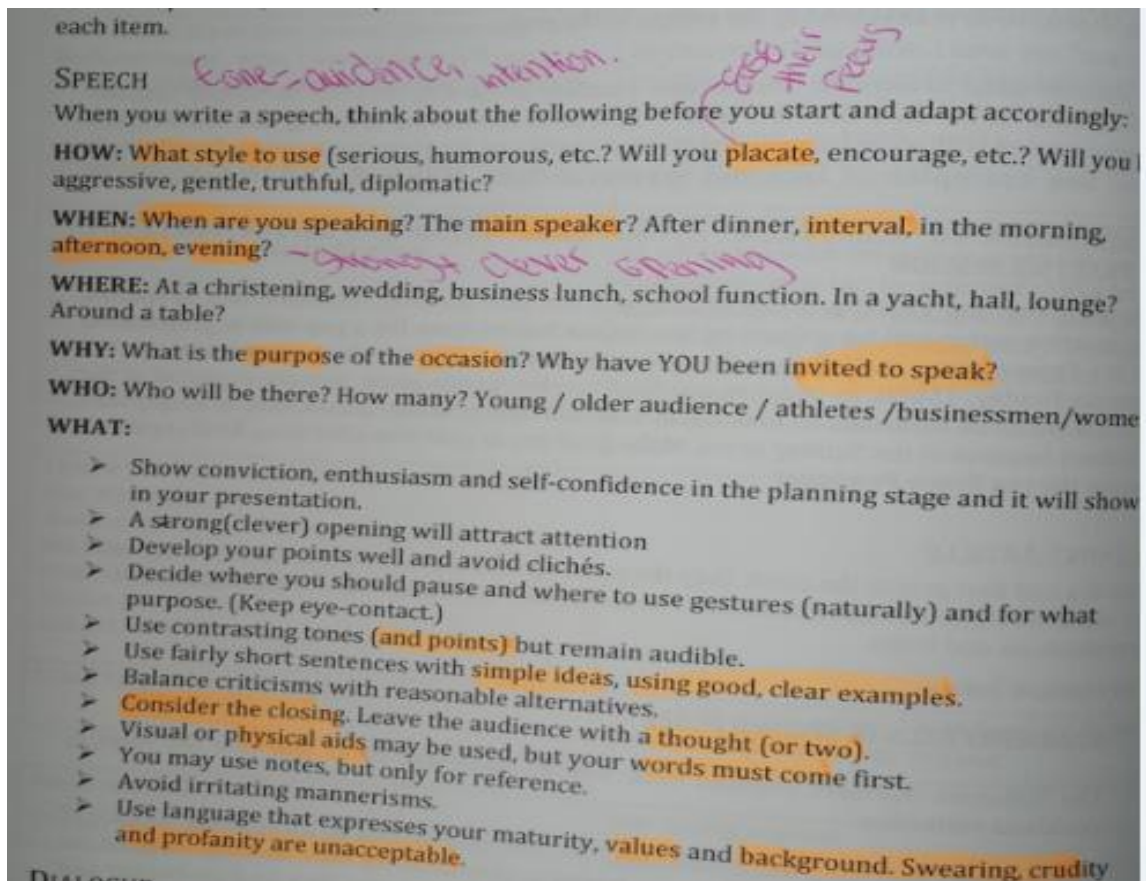 each item.
SPEECH tone-guidance, intention.
ease
their
focus
When you write a speech, think about the following before you start and adapt accordingly:
HOW: What style to use (serious, humorous, etc.? Will you placate, encourage, etc.? Will you
aggressive, gentle, truthful, diplomatic?
WHEN: When are you speaking? The main speaker? After dinner, interval, in the morning,
afternoon, evening? - strong + clever opening
WHERE: At a christening, wedding, business lunch, school function. In a yacht, hall, lounge?
Around a table?
WHY: What is the purpose of the occasion? Why have YOU been invited to speak?
WHO: Who will be there? How many? Young / older audience / athletes /businessmen/wome
WHAT:
➢ Show conviction, enthusiasm and self-confidence in the planning stage and it will show
in your presentation.
➢ A strong(clever) opening will attract attention
➢ Develop your points well and avoid clichés.
➢ Decide where you should pause and where to use gestures (naturally) and for what
purpose. (Keep eye-contact.)
➢ Use contrasting tones (and points) but remain audible.
➢ Use fairly short sentences with simple ideas, using good, clear examples.
➢ Balance criticisms with reasonable alternatives.
➢ Consider the closing. Leave the audience with a thought (or two).
➢ Visual or physical aids may be used, but your words must come first.
➢ You may use notes, but only for reference.
➢ Avoid irritating mannerisms.
➢ Use language that expresses your maturity, values and background. Swearing, crudity
and profanity are unacceptable.